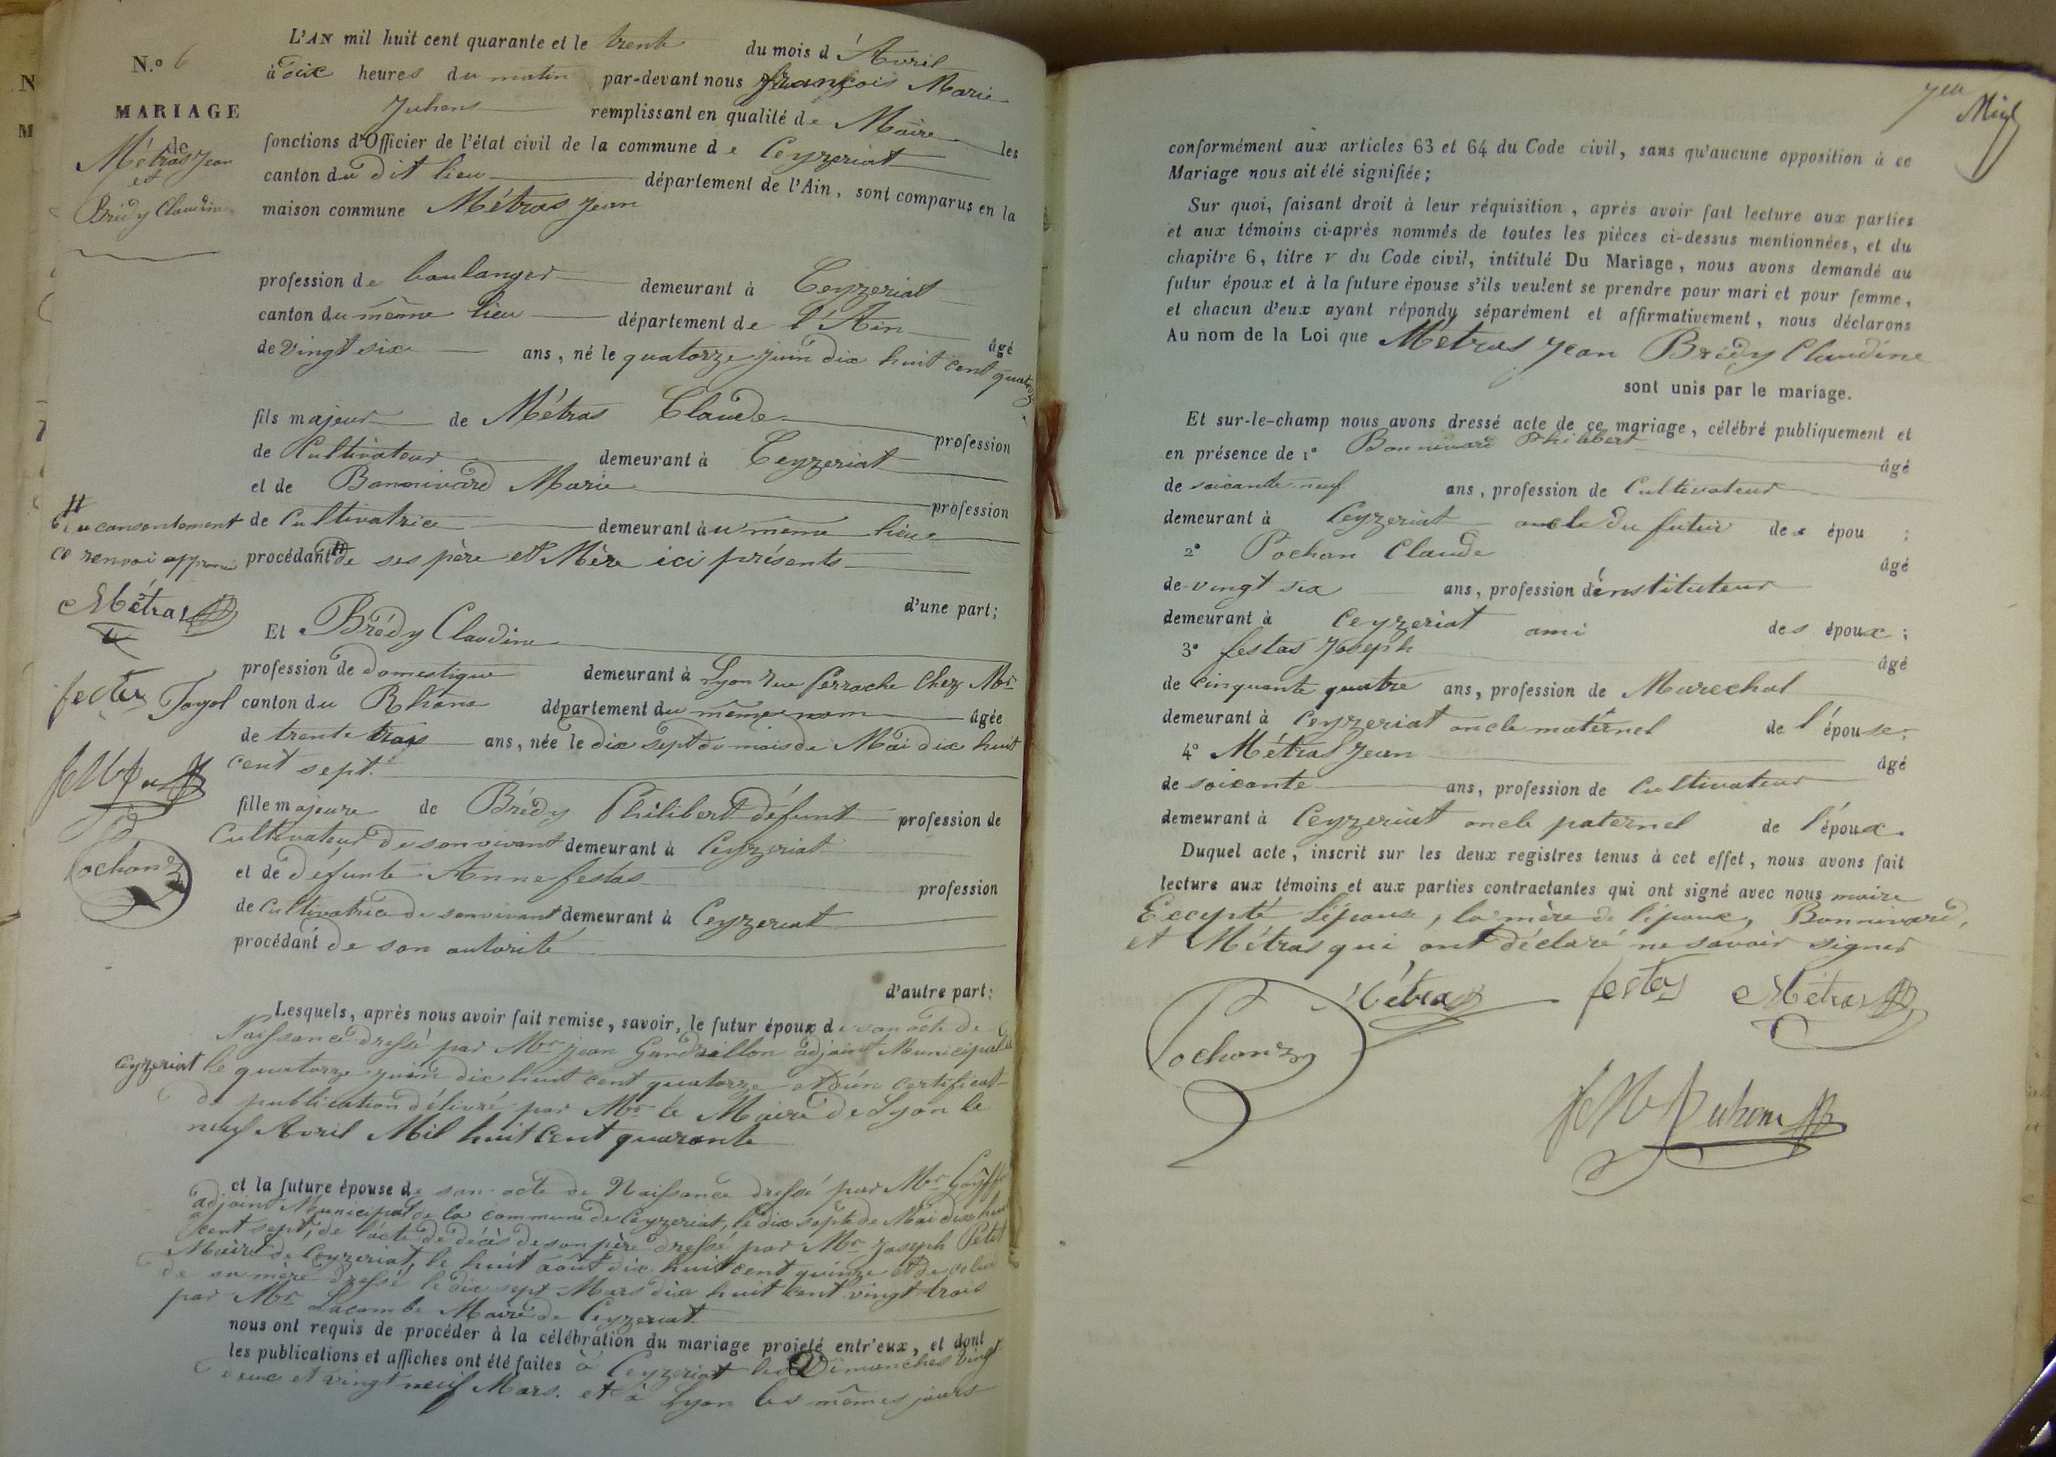 N.º 6
MARIAGE
de
Métras Jean
et
Brédy Claudine
L'AN mil huit cent quarante et le trente du mois d'Avril
à dix heures du matin par-devant nous françois Marie
Juhens remplissant en qualité de Maire les
fonctions d'Officier de l'état civil de la commune de Ceyzeriat
canton du dit lieu département de l'Ain, sont comparus en la
maison commune Métras Jean
profession de boulanger demeurant à Ceyzeriat
canton du même lieu département de l'Ain
âgé
de vingt six ans, né le quatorze juin dix huit cent quatorze
fils majeur de Métras Claude profession
de Cultivateur demeurant à Ceyzeriat
et de Bonnivard Marie profession
de Cultivatrice demeurant au même lieu
du consentement
ce renvoi approuvé
procédant de ses père et Mère ici présents
d'une part;
Métras
Et Brédy Claudine
profession de domestique demeurant à Lyon rue perrache chez Mr
festas
Tayol canton du Rhône département du même nom âgée
de trente trois ans, née le dix sept du mois de Mai dix huit
cent sept.
fille majeure de Brédy Philibert défunt profession de
Cultivateur de son vivant demeurant à Ceyzeriat
Pochon
et de défunte Anne festas profession
de Cultivatrice de son vivant demeurant à Ceyzeriat
procédant de son autorité
d'autre part;
Lesquels, après nous avoir fait remise, savoir, le futur époux de son acte de
Naissance dressé par Mr jean adjoint Municipal de
Ceyzeriat le quatorze juin dix huit cent quatorze et d'un certificat
de publication délivré par Mr le Maire de Lyon le
neuf Avril Mil huit cent quarante
et la future épouse de son acte de Naissance dressé par Mr
adjoint Municipal de la commune de Ceyzeriat, le dix sept de Mai dix huit
cent sept, de l'acte de décès de son père dressé par Mr Joseph Petit
Maire de Ceyzeriat, le huit août dix huit cent quinze et de celui
de sa mère dressé le dix sept Mars dix huit cent vingt trois
par Mr Lacombe Maire de Ceyzeriat
nous ont requis de procéder à la célébration du mariage projeté entr'eux, et dont
les publications et affiches ont été faites à Ceyzeriat les Dimanches vingt
deux et vingt neuf Mars. et à Lyon les mêmes jours
conformément aux articles 63 et 64 du Code civil, sans qu'aucune opposition à ce
Mariage nous ait été signifiée;
Sur quoi, faisant droit à leur réquisition, après avoir fait lecture aux parties
et aux témoins ci-après nommés de toutes les pièces ci-dessus mentionnées, et du
chapitre 6, titre v du Code civil, intitulé Du Mariage, nous avons demandé au
futur époux et à la future épouse s'ils veulent se prendre pour mari et pour femme,
et chacun d'eux ayant répondu séparément et affirmativement, nous déclarons
Au nom de la Loi que Métras Jean Brédy Claudine
sont unis par le mariage.
Et sur-le-champ nous avons dressé acte de ce mariage, célébré publiquement et
en présence de 1º Bonnivard Philibert âgé
de soixante neuf ans, profession de Cultivateur
demeurant à Ceyzeriat oncle du futur de s épou ;
2º Pochon Claude âgé
de vingt six ans, profession d'instituteur
demeurant à Ceyzeriat ami des époux;
3º festas Joseph âgé
de cinquante quatre ans, profession de Marechal
demeurant à Ceyzeriat oncle maternel de l'épouse;
4º Métras Jean âgé
de soixante ans, profession de Cultivateur
demeurant à Ceyzeriat oncle paternel de l'époux.
Duquel acte, inscrit sur les deux registres tenus à cet effet, nous avons fait
lecture aux témoins et aux parties contractantes qui ont signé avec nous maire
Excepté l'épouse, la mère de l'époux, Bonnivard,
et Métras qui ont déclaré ne savoir signer
Pochon Métras festas Métras